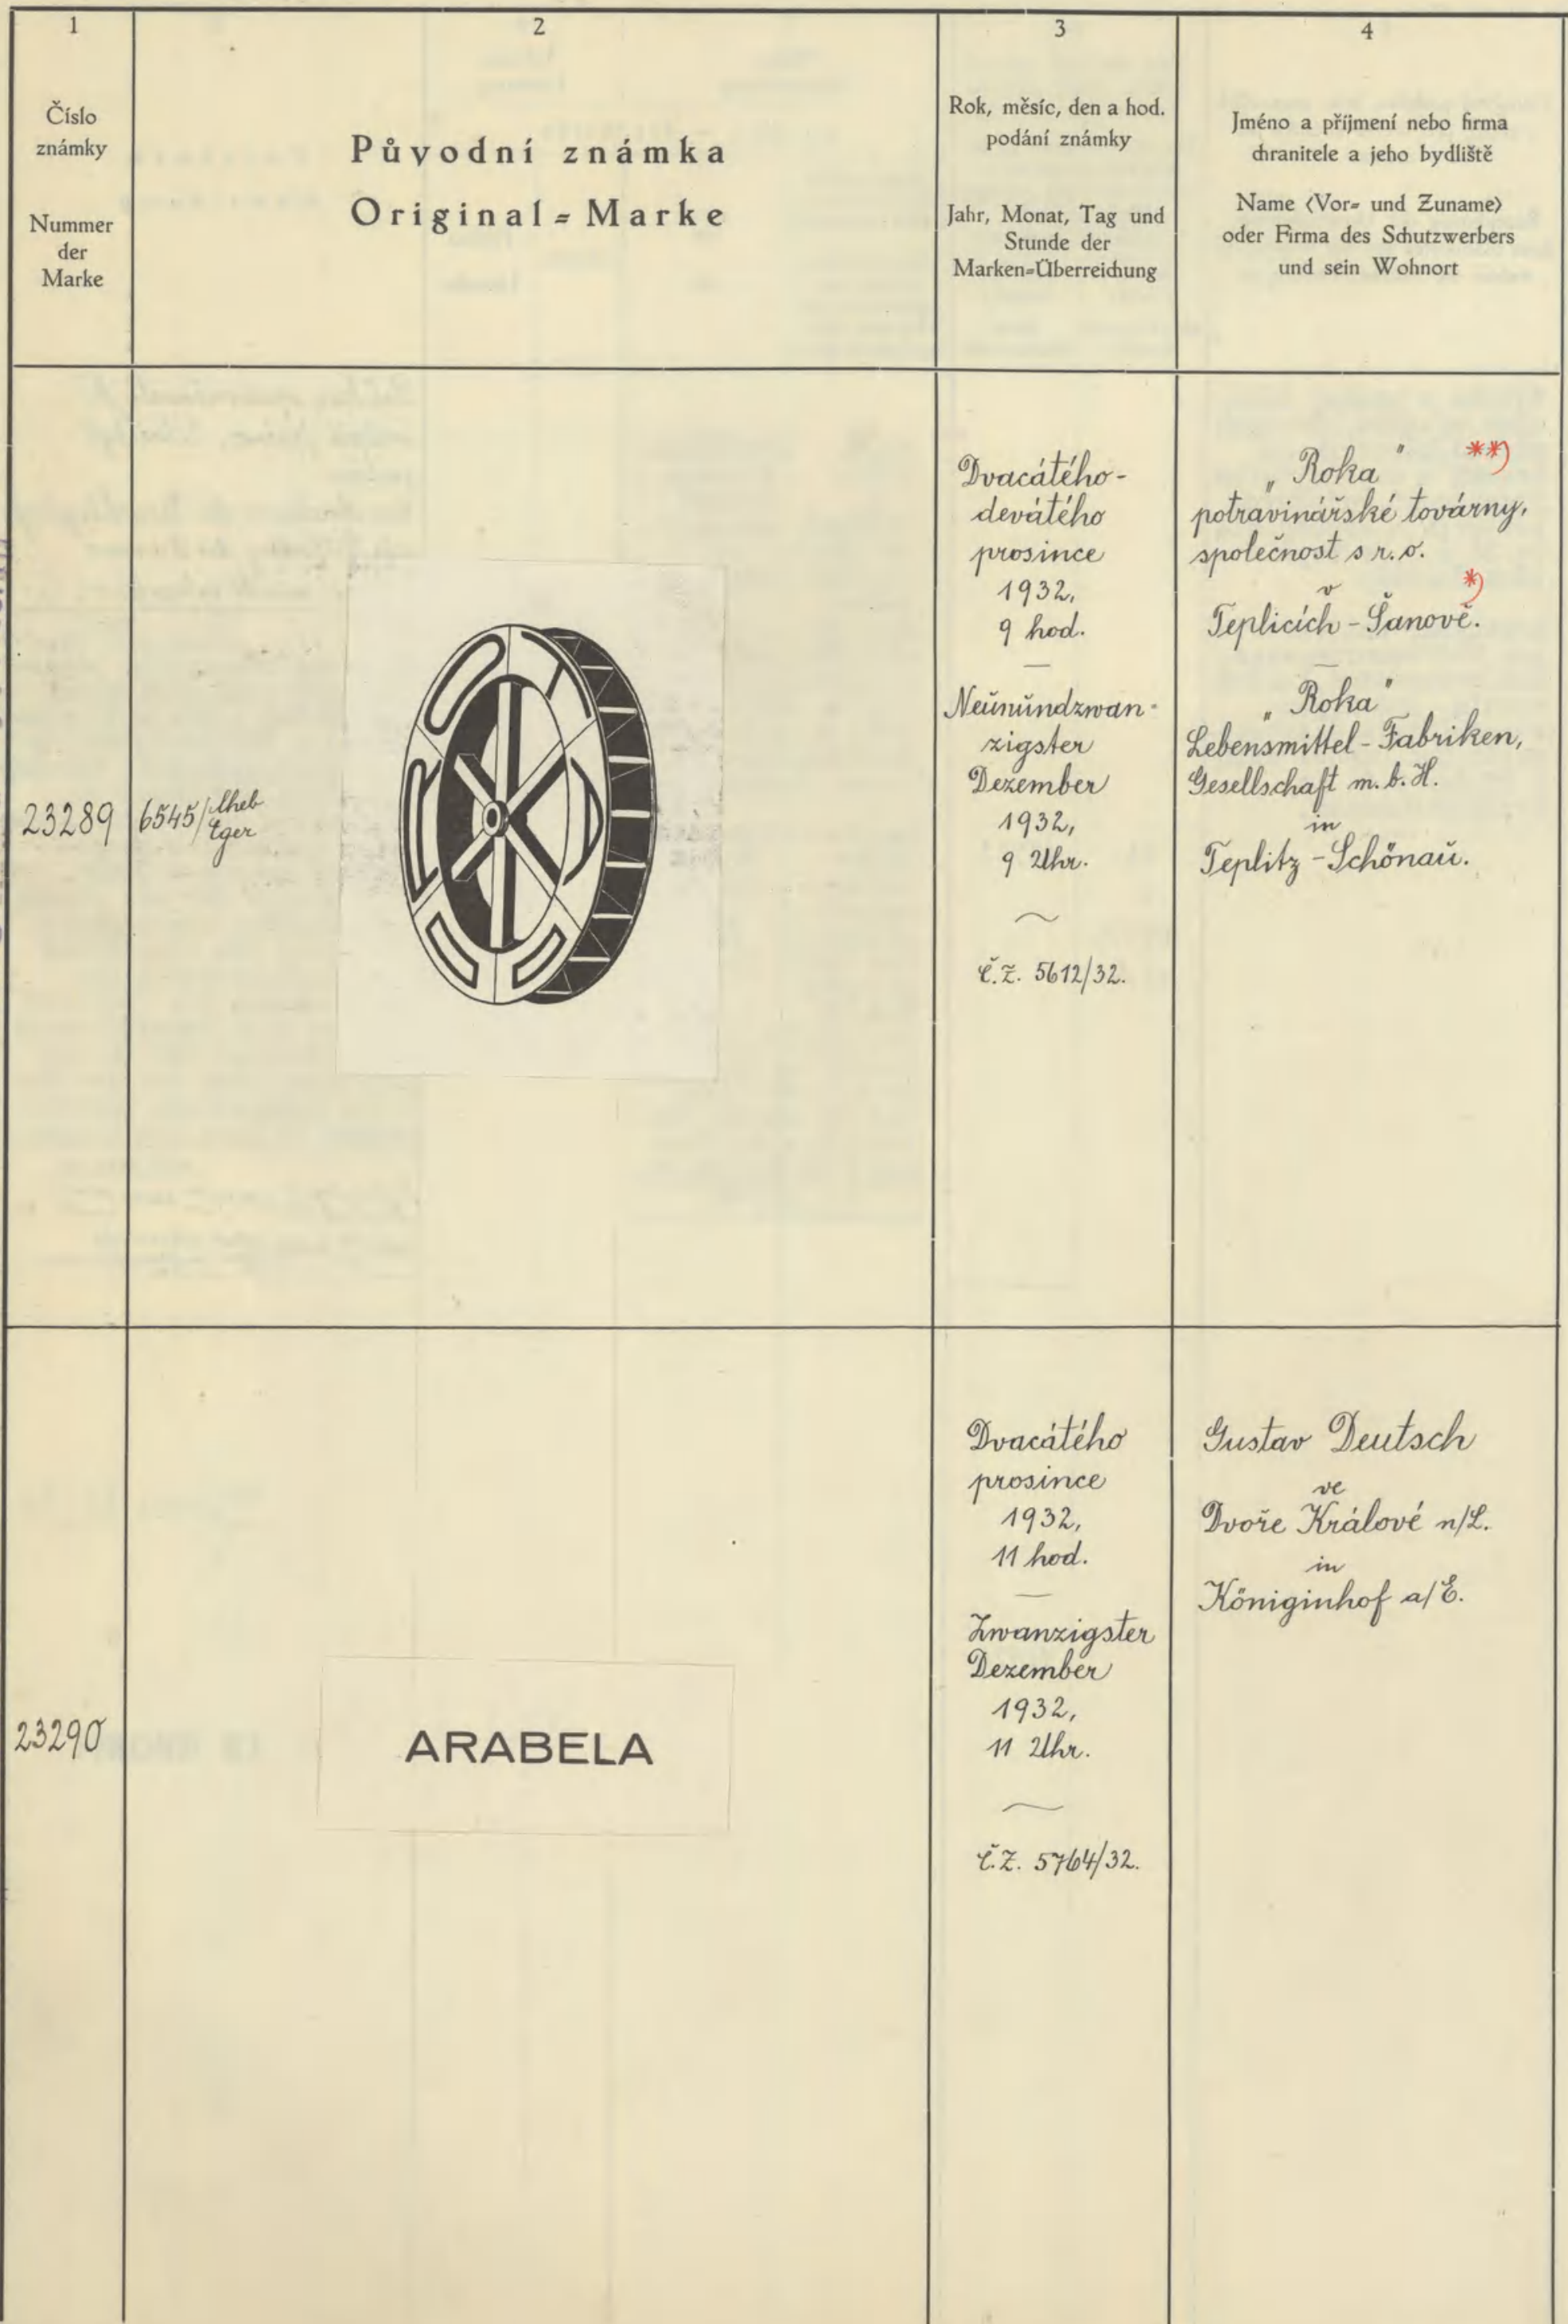 1
Číslo
známky
Nummer
der
Marke
2
Původní známka
Original=Marke
3
Rok, měsíc, den a hod.
podání známky
Jahr, Monat, Tag und
Stunde der
Marken=Überreichung
4
Jméno a příjmení nebo firma
chranitele a jeho bydliště
Name (Vor= und Zuname)
oder Firma des Schutzwerbers
und sein Wohnort
23289
6545/Cheb
Eger
Dvacátého-
devátého
prosince
1932,
9 hod.
Neŭnŭndzwan-
zigster
Dezember
1932,
9 Uhr.
Č.Z. 5612/32.
„Roka" **)
potravinářské továrny,
společnost s r.o.
v *)
Teplicích-Šanově.
„Roka"
Lebensmittel-Fabriken,
Gesellschaft m.b.H.
in
Teplitz-Schönaŭ.
23290
ARABELA
Dvacátého
prosince
1932,
11 hod.
Zwanzigster
Dezember
1932,
11 Uhr.
Č.Z. 5764/32.
Gustav Deutsch
ve
Dvoře Králové n/L.
in
Königinhof a/E.